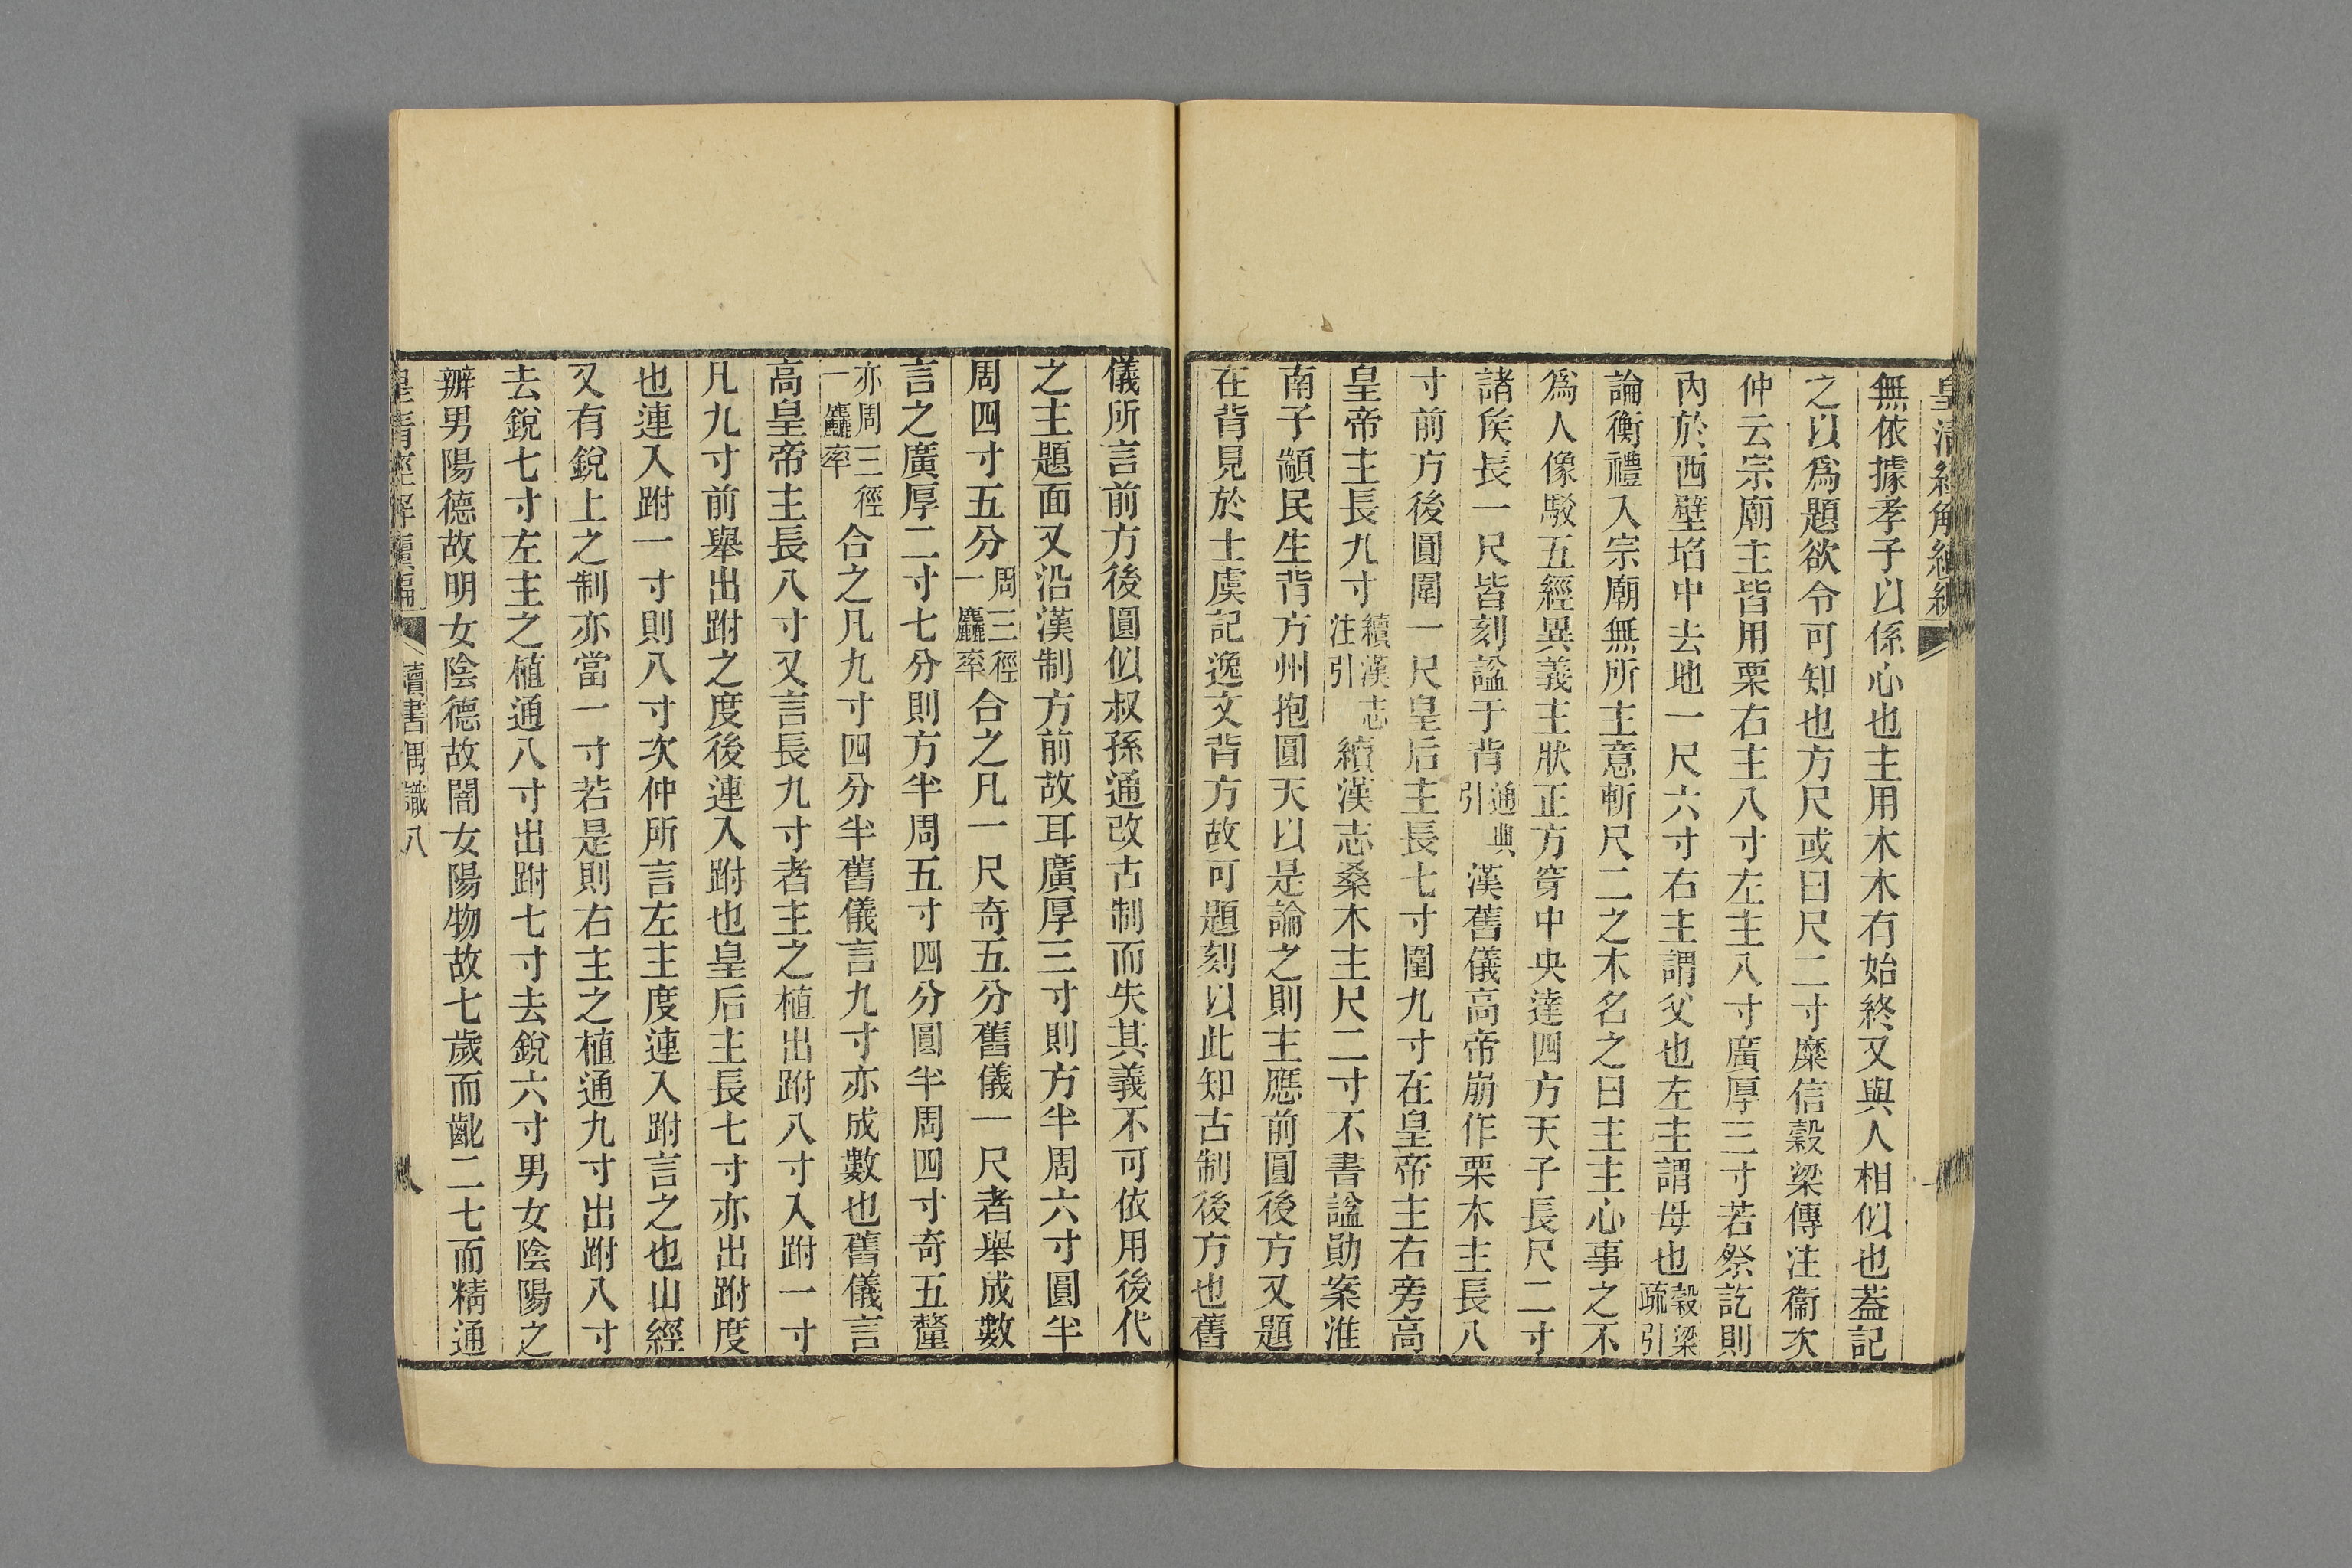 皇清經解續編
無依據孝子以係心也主用木木有始終又與人相似也葢記
之以爲題欲令可知也方尺或曰尺二寸糜信穀梁傳注衞次
仲云宗廟主皆用栗右主八寸左主八寸廣厚三寸若祭訖則
內於西壁埳中去地一尺六寸右主謂父也左主謂母也穀梁疏引
論衡禮入宗廟無所主意斬尺二之木名之曰主主心事之不
爲人像駁五經異義主狀正方穿中央達四方天子長尺二寸
諸矦長一尺皆刻諡于背通典引漢舊儀高帝崩作栗木主長八
寸前方後圓圍一尺皇后主長七寸圍九寸在皇帝主右旁高
皇帝主長九寸續漢志注引續漢志桑木主尺二寸不書諡勛案淮
南子顓民生背方州抱圓天以是論之則主應前圓後方又題
在背見於士虞記逸文背方故可題刻以此知古制後方也舊
儀所言前方後圓似叔孫通改古制而失其義不可依用後代
之主題面又沿漢制方前故耳廣厚三寸則方半周六寸圓半
周四寸五分周三徑一麤率合之凡一尺奇五分舊儀一尺者舉成數
言之廣厚二寸七分則方半周五寸四分圓半周四寸奇五釐
亦周三徑一麤率合之凡九寸四分半舊儀言九寸亦成數也舊儀言
高皇帝主長八寸又言長九寸者主之植出跗八寸入跗一寸
凡九寸前舉出跗之度後連入跗也皇后主長七寸亦出跗度
也連入跗一寸則八寸次仲所言左主度連入跗言之也山經
又有銳上之制亦當一寸若是則右主之植通九寸出跗八寸
去銳七寸左主之植通八寸出跗七寸去銳六寸男女陰陽之
辨男陽德故明女陰德故闇女陽物故七歲而齔二七而精通
皇清經解續編 讀書偶識八